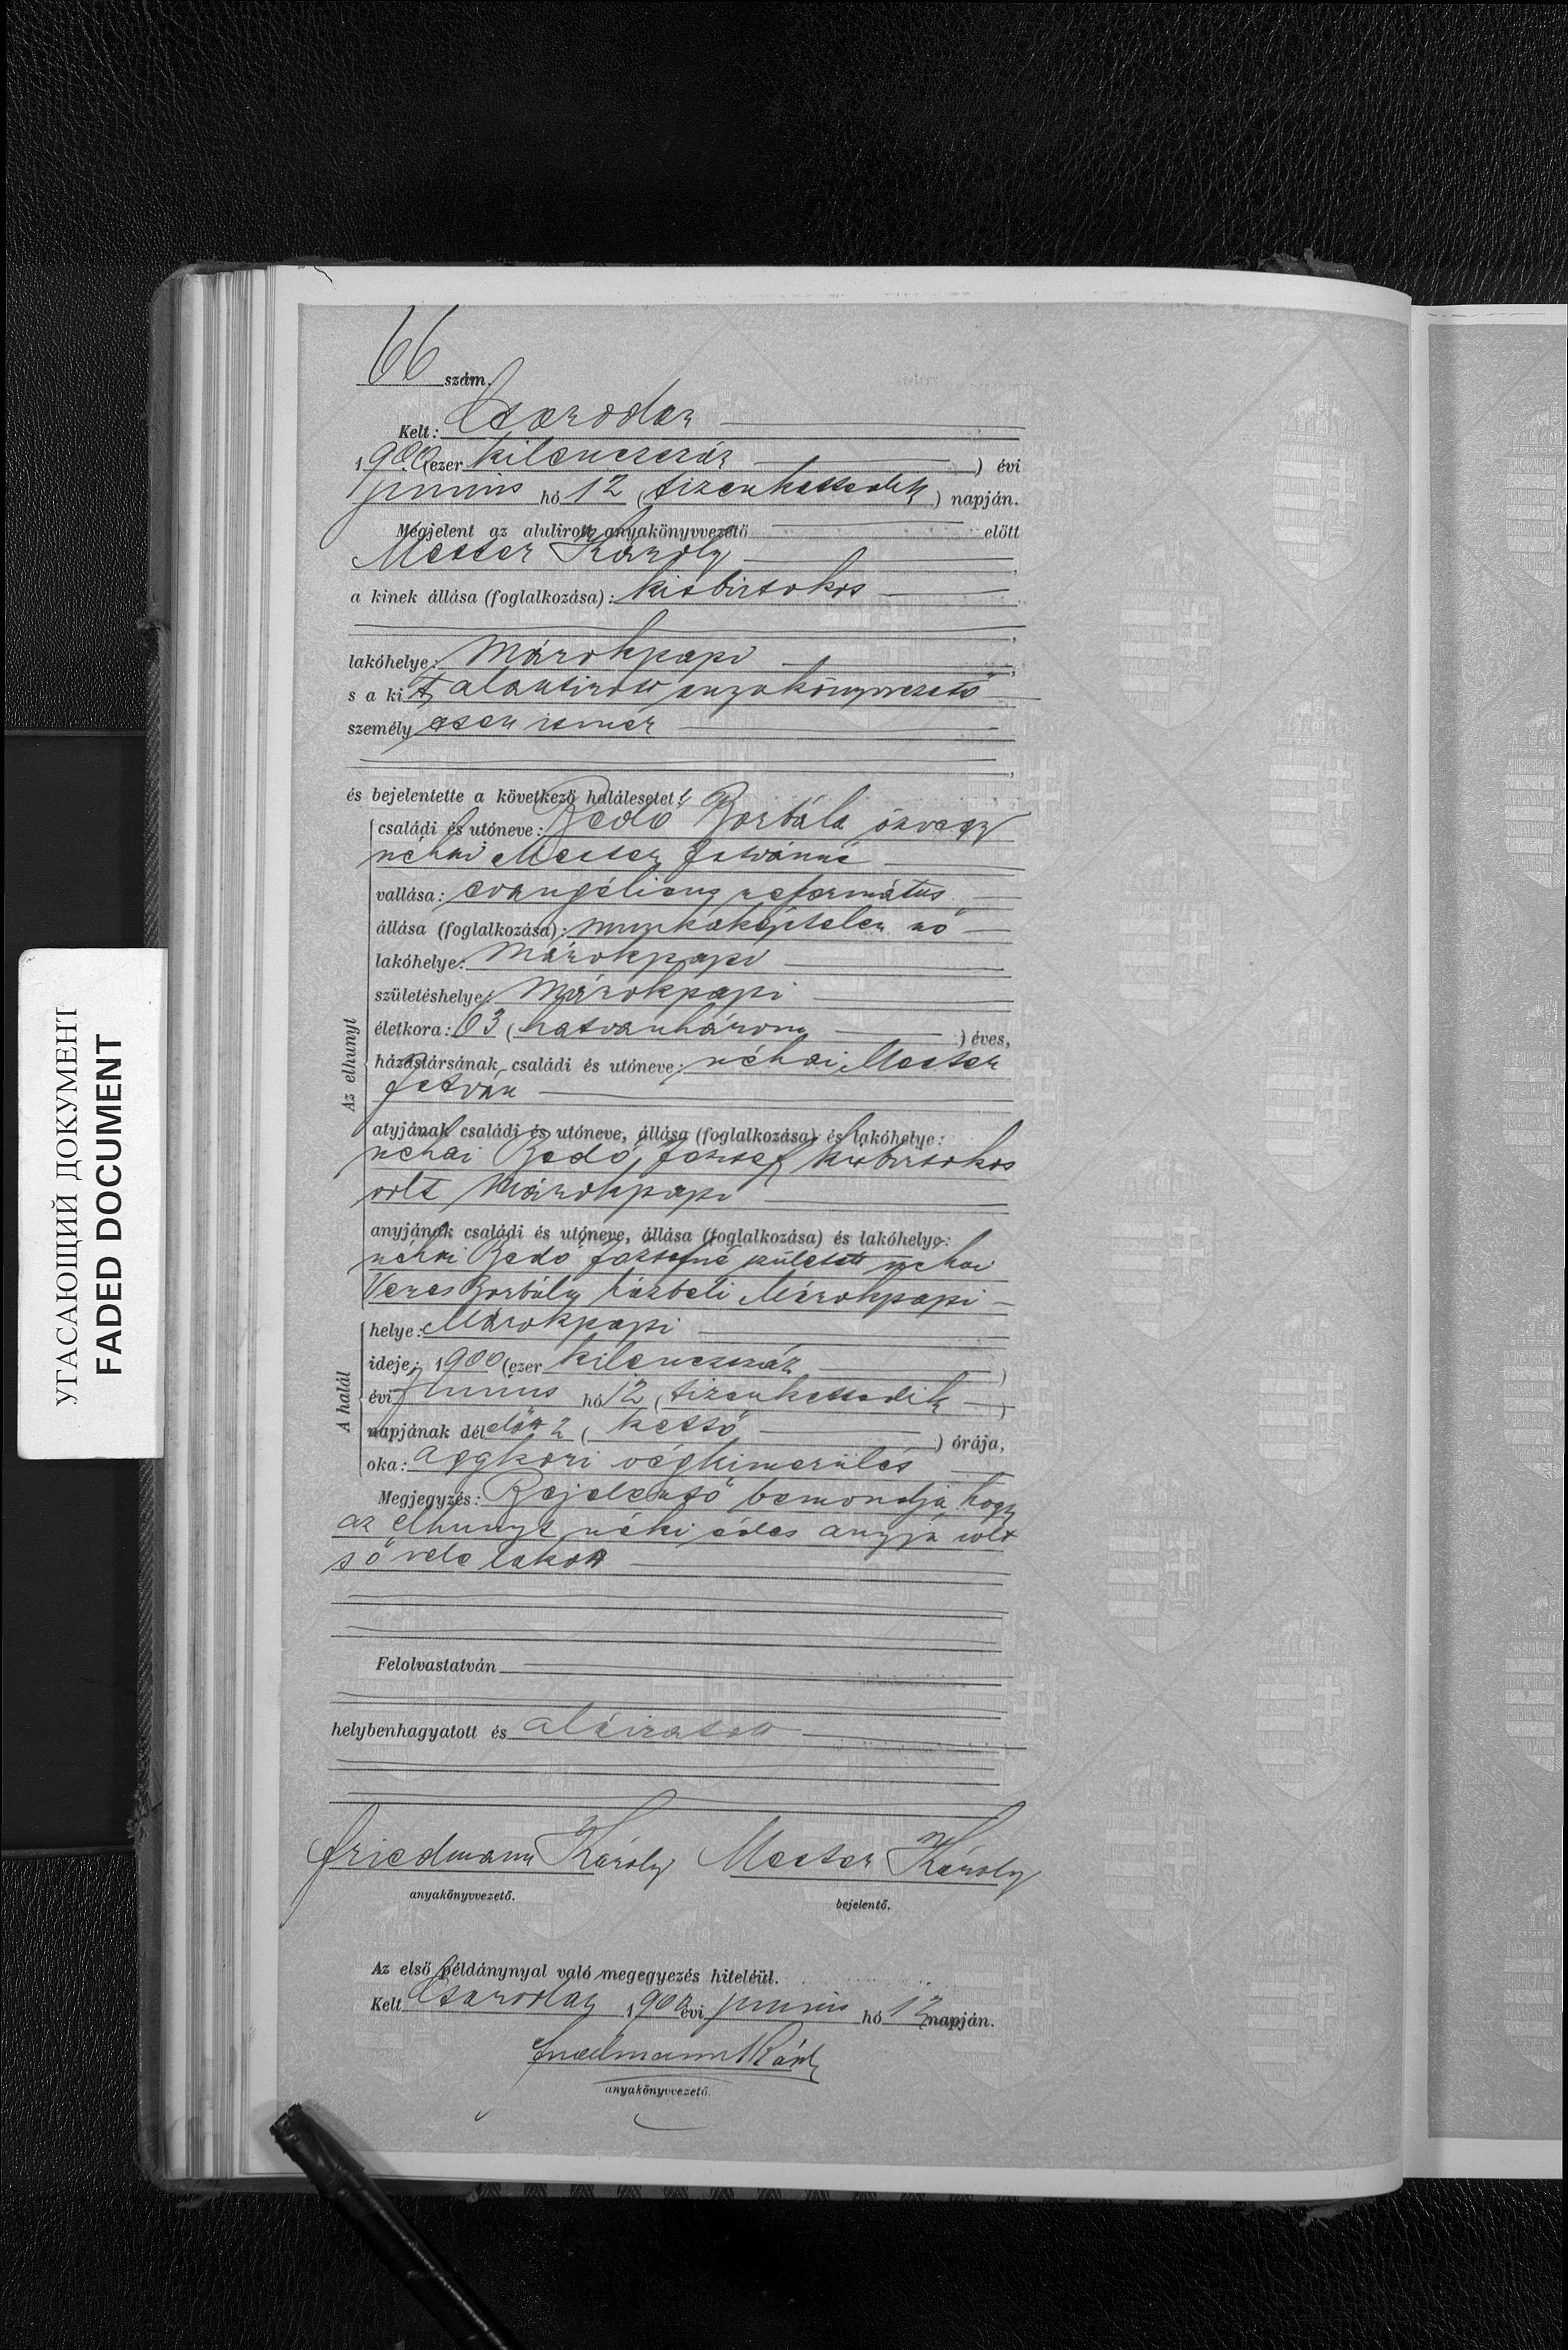 66 szám.
Kelt: Csarodán
1900 (ezer kilenczszáz ) évi
junius hó 12 (tizenkettedik) napján.
Megjelent az alulirott anyakönyvvezető előtt
Mester Károly
a kinek állása (foglalkozása): kisbirtokos
lakóhelye: Márokpapi
s a kit alantirott anyakönyvvezető
személyesen ismer
és bejelentette a következő halálesetet:
családi és utóneve: Bedő Borbála özvegy
néhai Mester Istvánné
vallása: evangéliomi református
állása (foglalkozása): munkaképtelen nő
lakóhelye: Márokpapi
születéshelye: Márokpapi
életkora: 63 (hatvanhárom ) éves,
házastársának családi és utóneve: néhai Mester
István
Az elhunyt
atyjának családi és utóneve, állása (foglalkozása) és lakóhelye:
néhai Bedő József kisbirtokos
volt Márokpapi
anyjának családi és utóneve, állása (foglalkozása) és lakóhelye:
néhai Bedő Józsefné született néhai
Veres Borbála házbeli Márokpapi
helye: Márokpapi
ideje: 1900 (ezer kilenczszáz )
évi junius hó 12 (tizenkettedik )
napjának délelőtt 2 ( kettő ) órája,
oka: aggkori végkimerülés
A halál
Megjegyzés: Bejelentő bemondja, hogy
az elhunyt néki édes anyja volt
s ő vele lakott
Felolvastatván
helybenhagyatott és aláiratott
Friedmann Károly Mester Károly
anyakönyvvezető. bejelentő.
Az első példánynyal való megegyezés hiteléül.
Kelt Csarodán 1900 évi junius hó 12 napján.
Friedmann Károly
anyakönyvvezető.
УГАСАЮЩИЙ ДОКУМЕНТ
FADED DOCUMENT